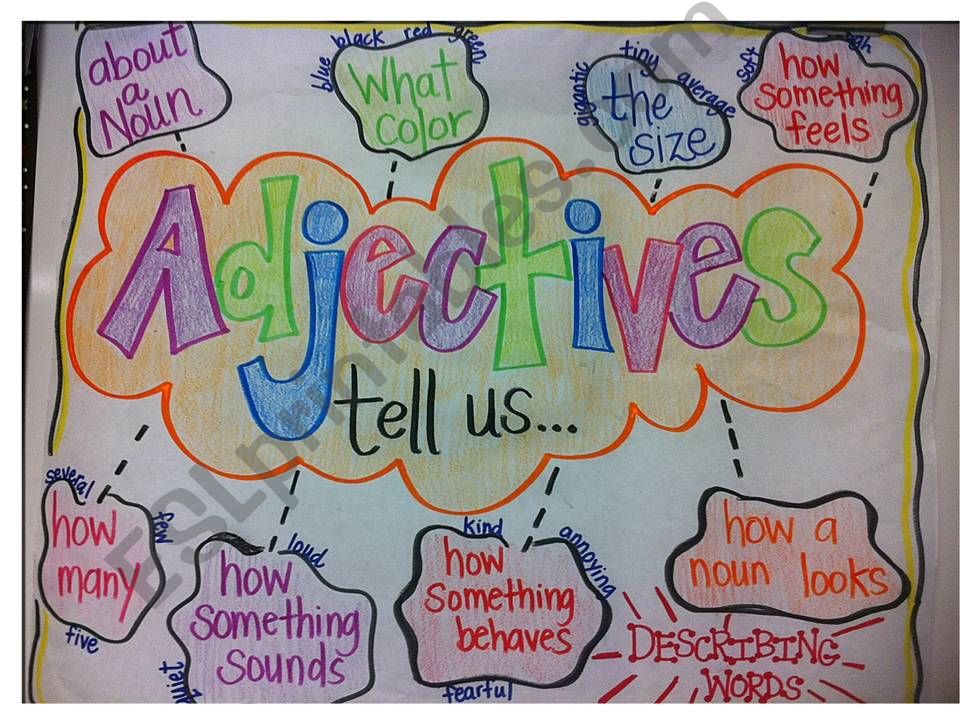 about
a
Noun
blue black red green
What
color
gigantic tiny average
the
size
soft
how
something
feels
Adjectives
tell us...
several
how
many
few
five
loud
how
something
sounds
kind
annoying
how
something
behaves
fearful
how a
noun looks
DESCRIBING
WORDS
ESLprintables.com